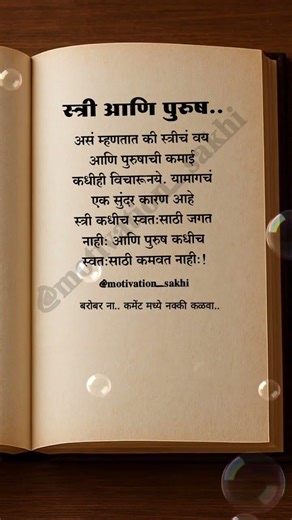 स्त्री आणि पुरुष..
असं म्हणतात की स्त्रीचं वय
आणि पुरुषाची कमाई
कधीही विचारूनये. यामागचं
एक सुंदर कारण आहे
स्त्री कधीच स्वत:साठी जगत
नाही: आणि पुरुष कधीच
स्वत:साठी कमवत नाही:!
@motivation_sakhi
बरोबर ना.. कमेंट मध्ये नक्की कळवा..
@motivation_sakhi